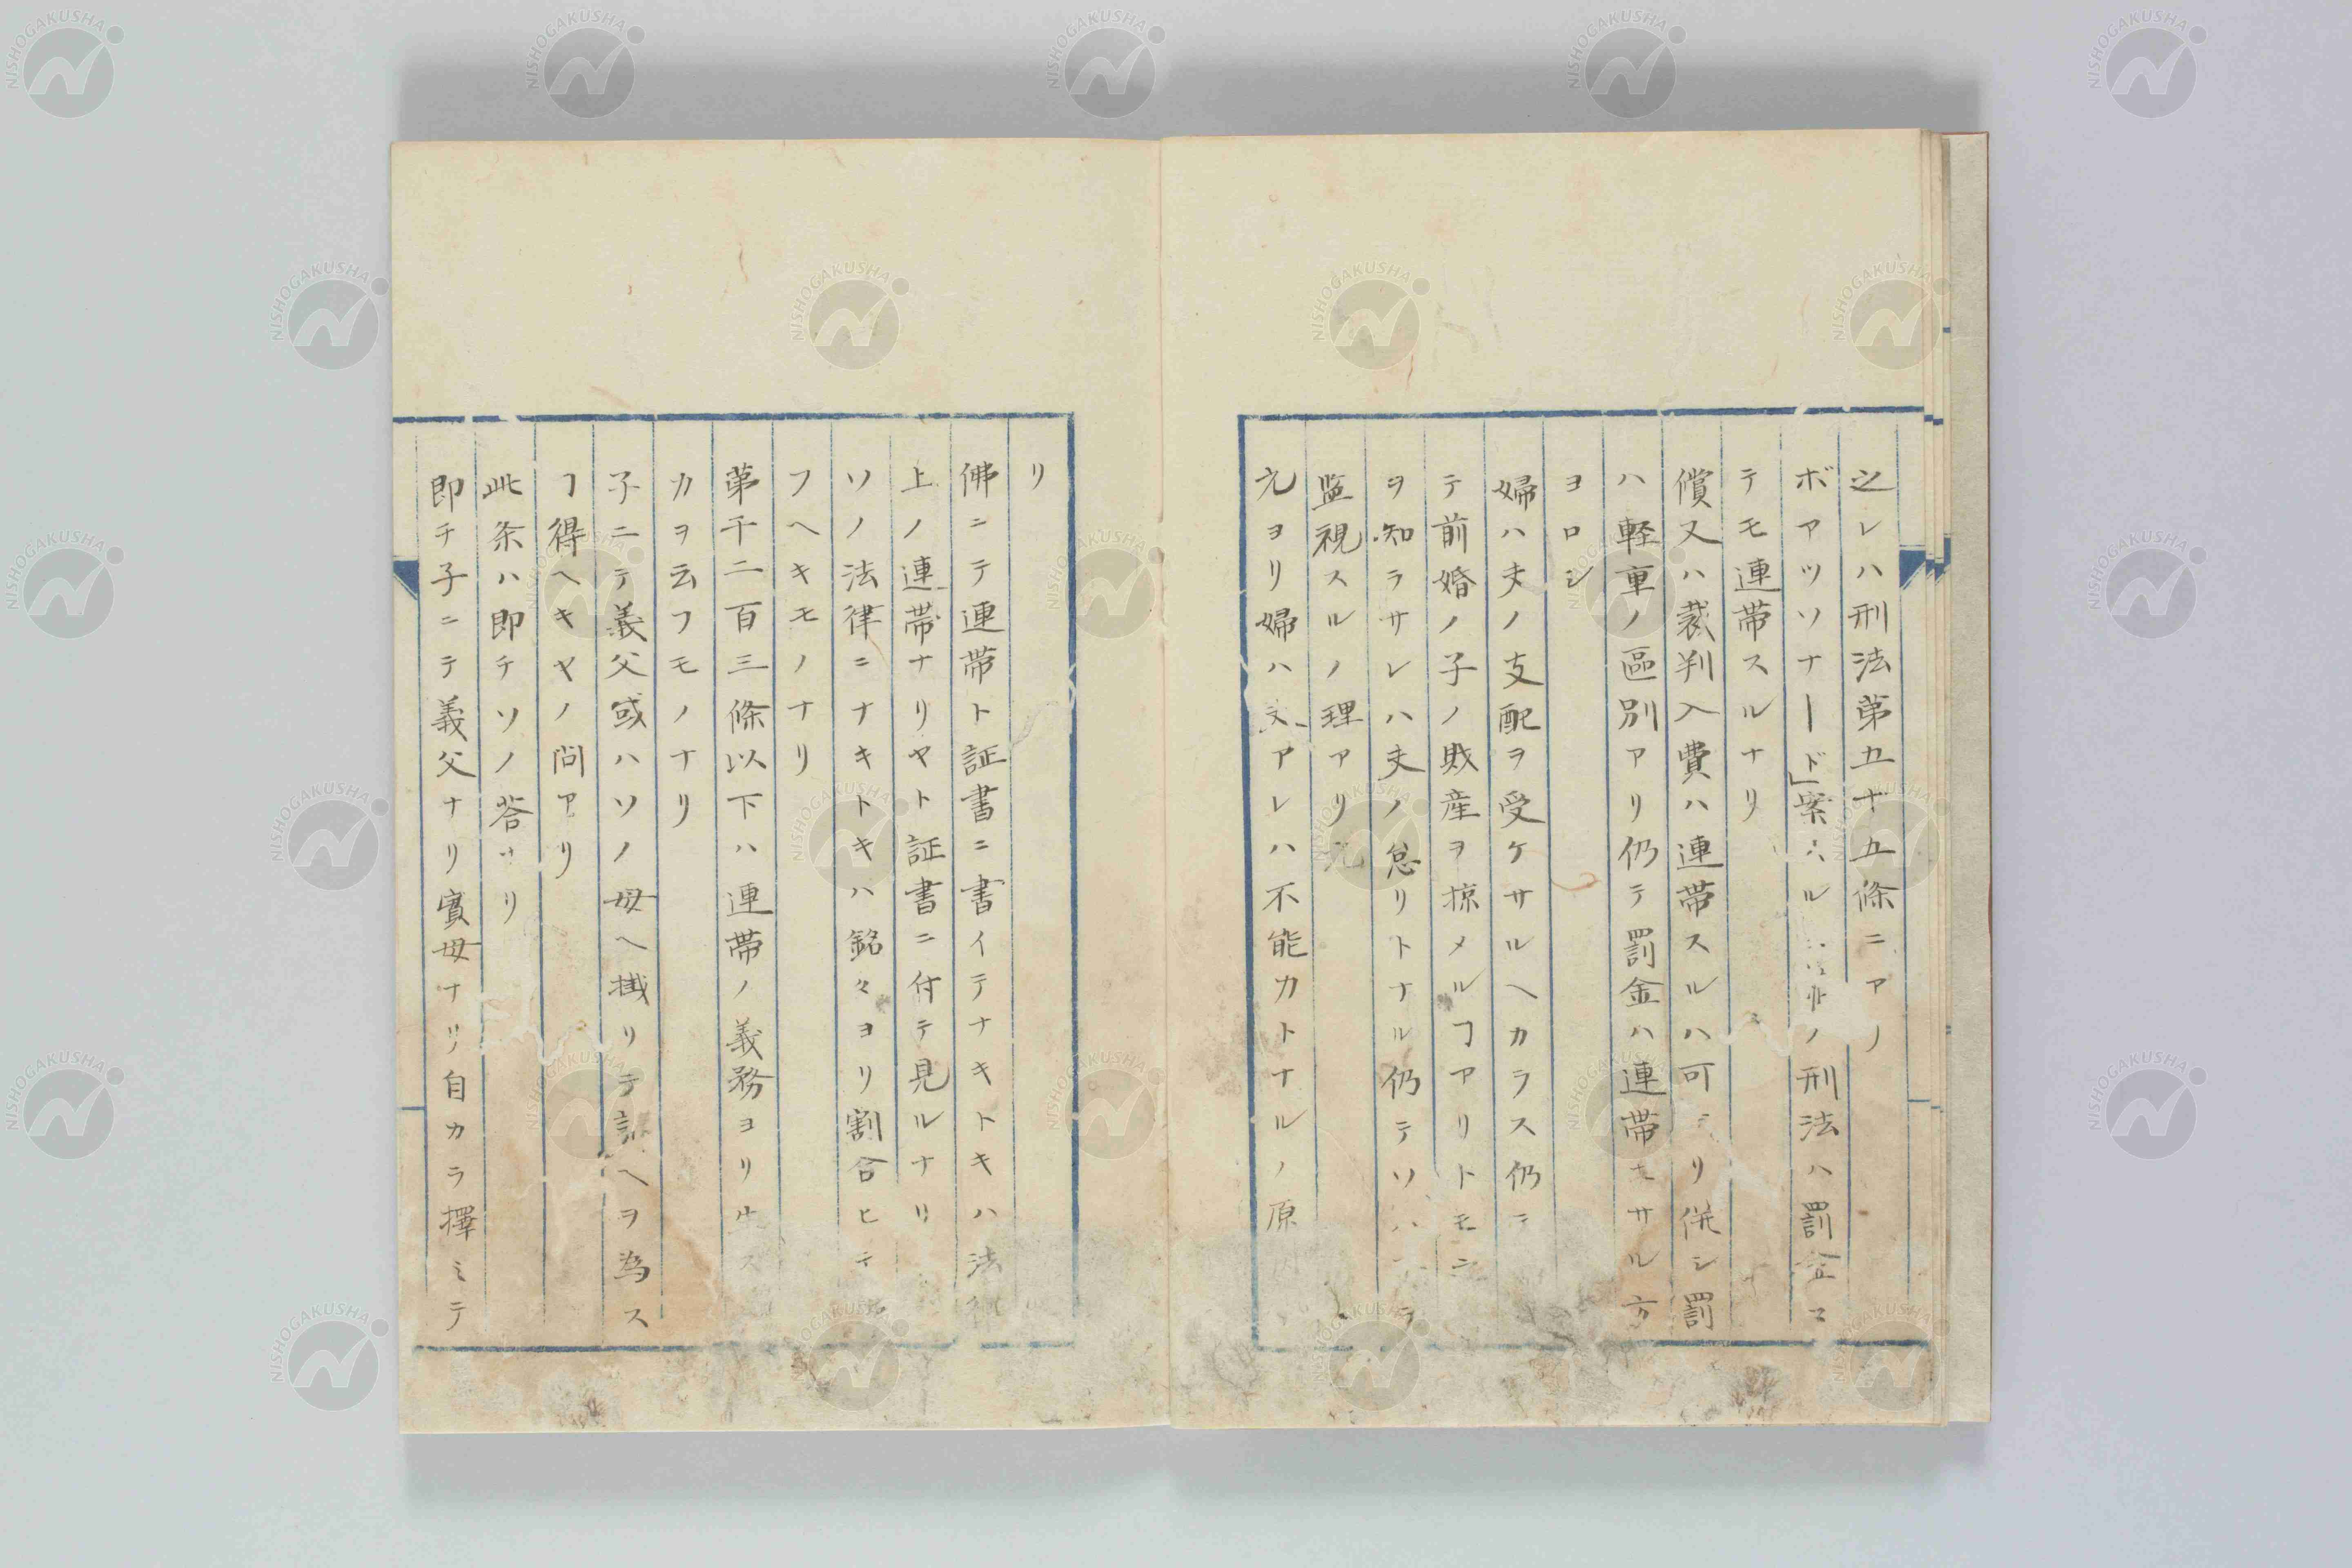 之レハ刑法第五十五條ニアリ
ボアツソナード」案スル 刑法ハ罰金ニ
テモ連帯スルナリ
償又ハ裁判入費ハ連帯スルハ可ナリ併シ罰
ハ軽重ノ區別アリ仍テ罰金ハ連帯セサル方
ヨロシ
婦ハ夫ノ支配ヲ受ケサルヘカラス仍テ
テ前婚ノ子ノ財産ヲ掠メルヿアリトモ
ヲ知ラサレハ夫ノ怠リトナル仍テソ
監視スルノ理アリ
元ヨリ婦ハ夫アレハ不能力トナルノ原
リ
佛ニテ連帯ト証書ニ書イテナキトキハ法律
上ノ連帯ナリヤト証書ニ付テ見ルナリ
ソノ法律ニナキトキハ銘々ヨリ割合ヒテ
フヘキモノナリ
第千二百三條以下ハ連帯ノ義務ヨリ生ス
カヲ云フモノナリ
子ニテ義父或ハソノ母ヘ掛リテ訴ヘヲ為ス
ヿ得ヘキヤノ問アリ
此条ハ即チソノ答ナリ
即チ子ニテ義父ナリ實母ナリ自カラ擇ミテ
NISHOGAKUSHA